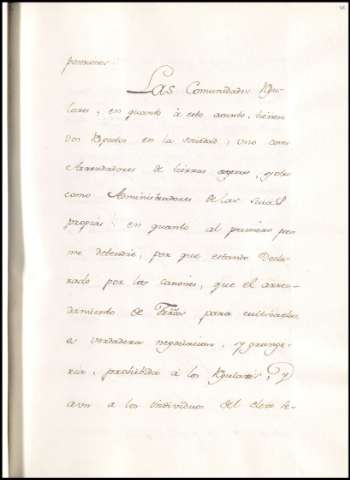 pasiones.
Las Comunidades Regu-
lares, en quanto à este asunto, tienen
dos Respetos en la realidad; uno como
Arrendadores de tierras agenas, y otro
como Administradores de las suias
propias: en quanto al primero poco
me detendré; por que estando Decla-
rado por los canones, que el arren-
damiento de Trrâs para cultibarlas
es verdadera negociacion, y grange-
ria, prohibida à los Regulares, y
aun a los individuos del clero se-